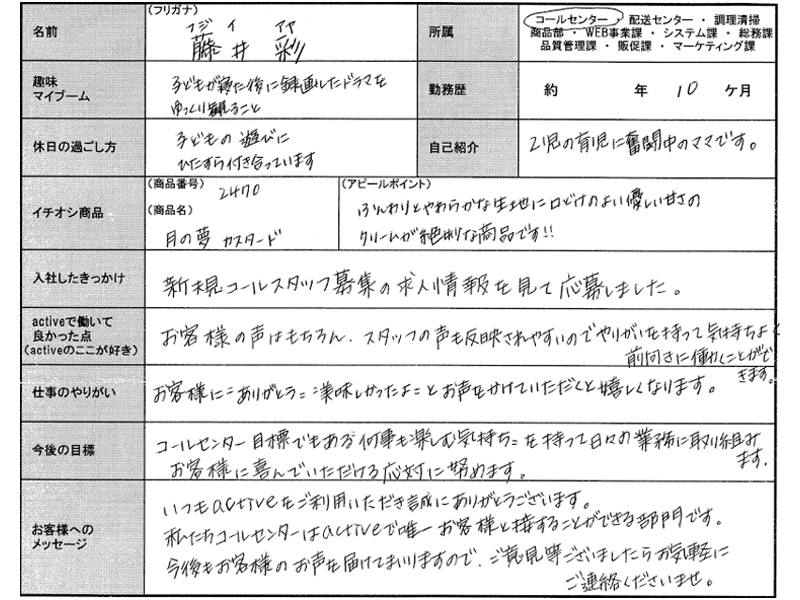 名前
(フリガナ)
フジイ アヤ
藤井 彩
所属
コールセンター ・ 配送センター ・ 調理清掃
商品部 ・ WEB事業課 ・ システム課 ・ 総務課
品質管理課 ・ 販促課 ・ マーケティング課
趣味
マイブーム
子どもが寝た後に録画したドラマを
ゆっくり観ること
勤務歴
約 年 10 ケ月
休日の過ごし方
子どもの遊びに
ひたすら付き合っています
自己紹介
2児の育児に奮闘中のママです。
イチオシ商品
(商品番号)
2470
(商品名)
月の夢 カスタード
(アピールポイント)
ふんわりとやわらかな生地に口どけのよい優しい甘さの
クリームが絶妙な商品です!!
入社したきっかけ
新規コールスタッフ募集の求人情報を見て応募しました。
activeで働いて
良かった点
(activeのここが好き)
お客様の声はもちろん、スタッフの声も反映されやすいのでやりがいを持って気持ちよく
前向きに働くことがで
きます。
仕事のやりがい
お客様に「ありがとう」「美味しかったよ」とお声をかけていただくと嬉しくなります。
今後の目標
コールセンター目標でもある「何事も楽しむ気持ち」を持って日々の業務に取り組み
ます。
お客様に喜んでいただける応対に努めます。
お客様への
メッセージ
いつもactiveをご利用いただき誠にありがとうございます。
私たちコールセンターはactiveで唯一お客様と接することができる部門です。
今後もお客様のお声を届けてまいりますので、ご意見等ございましたらお気軽に
ご連絡くださいませ。